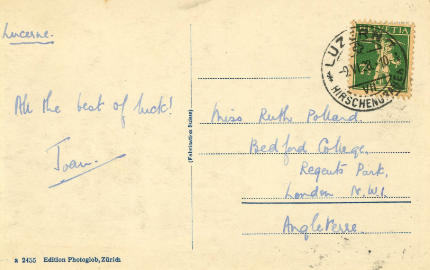 Lucerne.
All the best of luck!
Joan.
(Fabrication Suisse)
HELVETIA
LUZERN
HIRSCHENGRABEN
Miss Ruth Pollard,
Bedford College,
Regents Park,
London N.W.1.
Angleterre.
a 2455 Edition Photoglob, Zürich